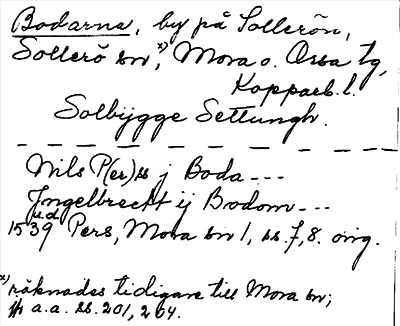 Bodarna, by på Sollerön,
Sollerö sn, x) Mora o. Orsa tg,
Kopparb. l.
Solbÿgge Settungh.
Nils P(er)ss j Boda ---
Jngelbrecht ij Bodom ---
u.d.
1539 Pers, Mora sn 1, ss. 7, 8. orig.
x) räknades tidigare till Mora sn;
a.a. ss. 201, 204.